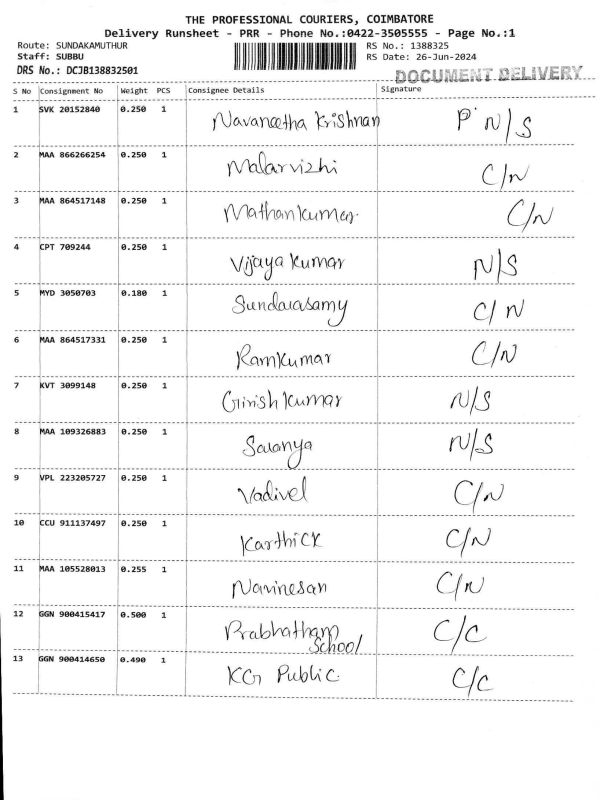 THE PROFESSIONAL COURIERS, COIMBATORE
Delivery Runsheet - PRR - Phone No.:0422-3505555 - Page No.:1
Route: SUNDAKAMUTHUR RS No.: 1388325
Staff: SUBBU RS Date: 26-Jun-2024
DRS No.: DCJB138832501 DOCUMENT DELIVERY
S No Consignment No Weight PCS Consignee Details Signature
1 SVK 20152840 0.250 1 Navaneetha Krishnan P N/S
2 MAA 866266254 0.250 1 Malarvizhi C/N
3 MAA 864517148 0.250 1 Mathankumar C/N
4 CPT 709244 0.250 1 Vijaya Kumar N/S
5 MYD 3050703 0.180 1 Sundarasamy C/N
6 MAA 864517331 0.250 1 Ramkumar C/N
7 KVT 3099148 0.250 1 Girish Kumar N/S
8 MAA 109326883 0.250 1 Saranya N/S
9 VPL 223205727 0.250 1 Vadivel C/N
10 CCU 911137497 0.250 1 Karthick C/N
11 MAA 105528013 0.255 1 Navinesan C/N
12 GGN 900415417 0.500 1 Prabhatham School C/C
13 GGN 900414650 0.490 1 KG Public C/C